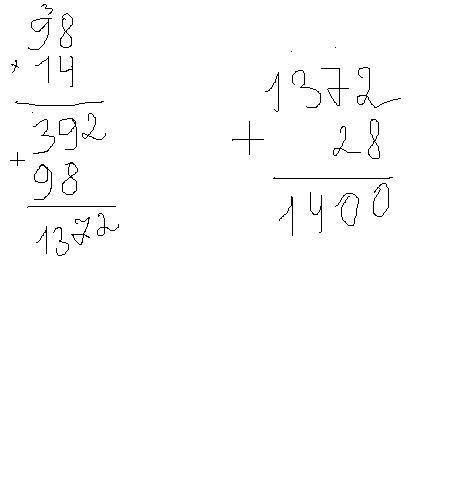 3
98
× 14
392
+
98
1372
1372
+ 28
1400